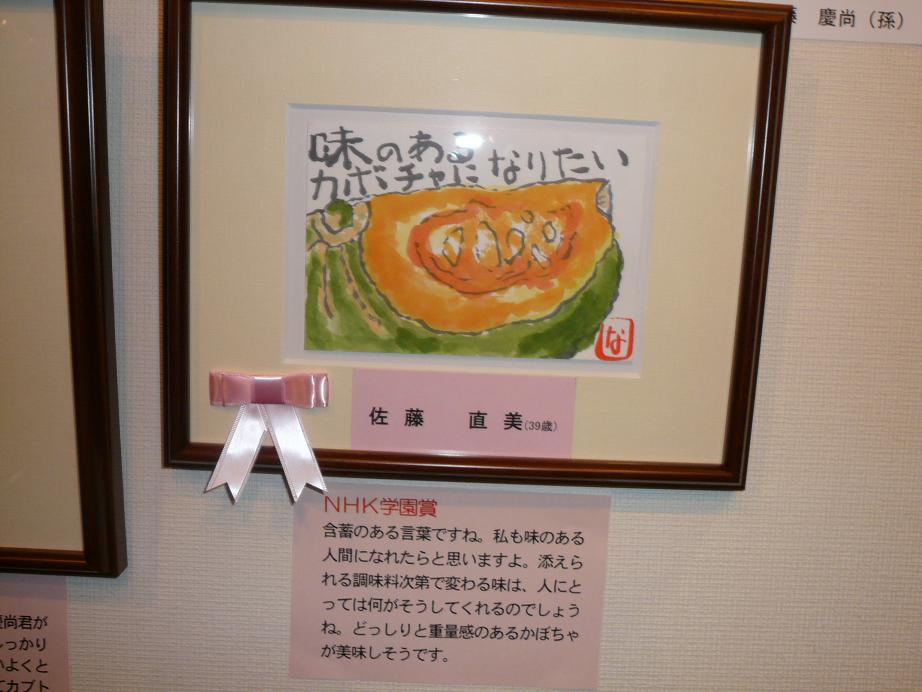 慶尚（孫）
味のある
カボチャになりたい
な
佐藤　直美(39歳)
NHK学園賞
含蓄のある言葉ですね。私も味のある
人間になれたらと思いますよ。添えら
れる調味料次第で変わる味は、人にと
っては何がそうしてくれるのでしょう
ね。どっしりと重量感のあるかぼちゃ
が美味しそうです。
尚君が
っかり
いよくと
てカブト